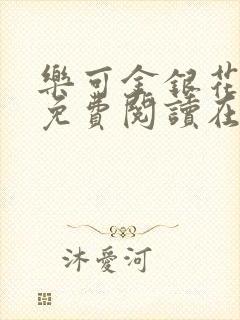 樂可金銀花
免費閱讀在
沐愛河